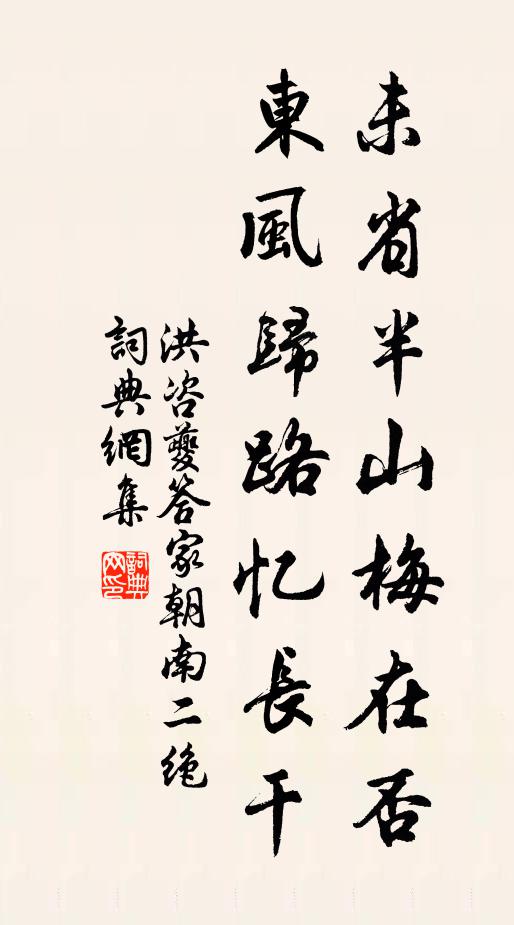 未省半山梅在否
東風歸路忆長干
洪咨夔答家朝南二绝
詞典網集
詞典
网印